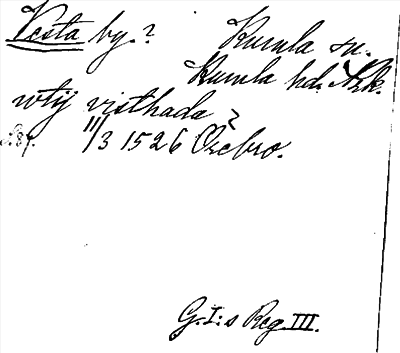 Vesta by.? Kumla sn.
Kumla hd. Nrk.
wtij visthada?
11/3 1526 Örebro.
G.I:s Reg. III.